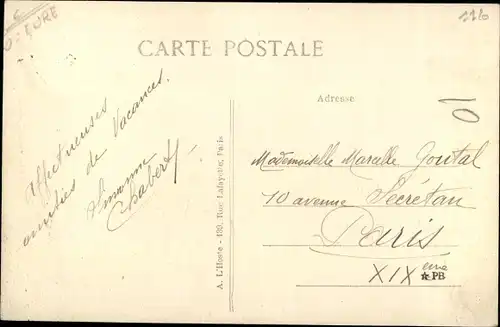 EURE
1120
CARTE POSTALE
Adresse
10
Affectueuses
amitiés de Vacances.
Chabert
A. L'Hoste - 130, Rue Lafayette, Paris
Mademoiselle Marcelle Goutal
10 avenue Secrétan
Paris
XIX ème
PB